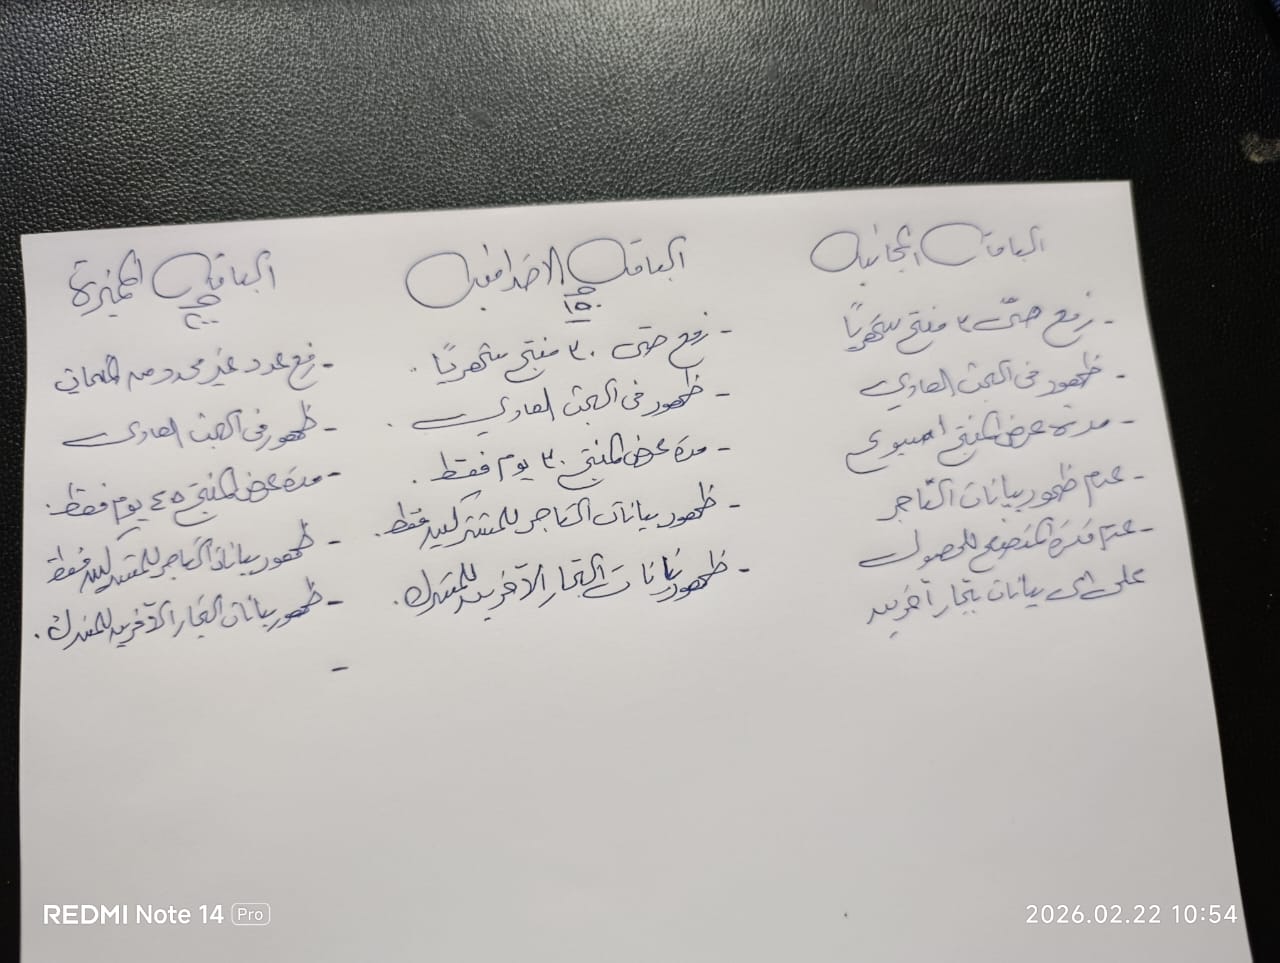 الباقة المجانية
- رفع حتى ٣ منتج شهريًا
- ظهور فى البحث العادي
- مدة عرض المنتج اسبوع
- عدم ظهور بيانات التاجر
- عدم قدرة المتصفح للحصول
على اى بيانات تجار آخرين
الباقة الاضافية
١٥٠
- رفع حتى ٣٠ منتج شهريًا .
- ظهور فى البحث العادي .
- مدة عرض المنتج ٣٠ يوم فقط .
- ظهور بيانات التاجر للمشتركين فقط .
- ظهور بيانات التجار الآخرين للمشترك .
الباقة المميزة
٢٠٠
- رفع عدد غير محدود من
- ظهور فى البحث العادى
- مدة عرض المنتج ٤٥ يوم فقط .
- ظهور بيانات التاجر للمشتركين فقط
- ظهور بيانات التجار الآخرين للمشترك .
-
REDMI Note 14 Pro
2026.02.22 10:54